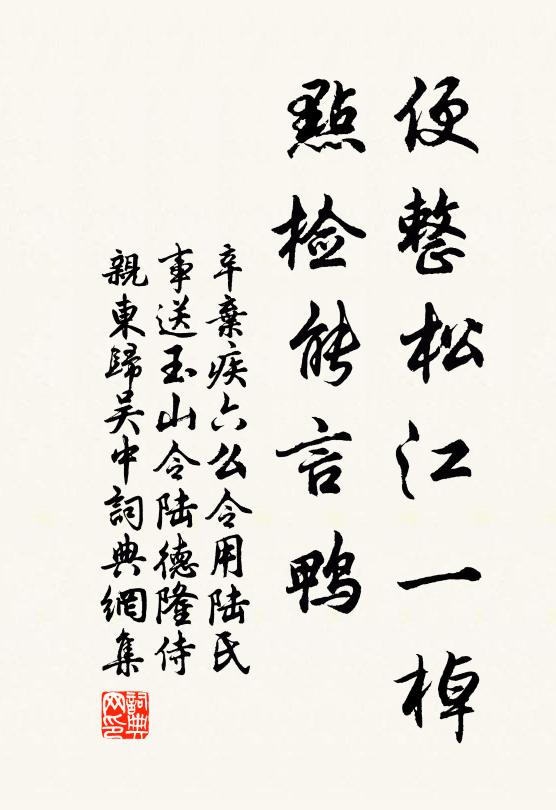 便整松江一棹
點檢能言鴨
辛棄疾六么令用陆氏
事送玉山令陆德隆侍
親東歸吴中詞典網集
詞典网印